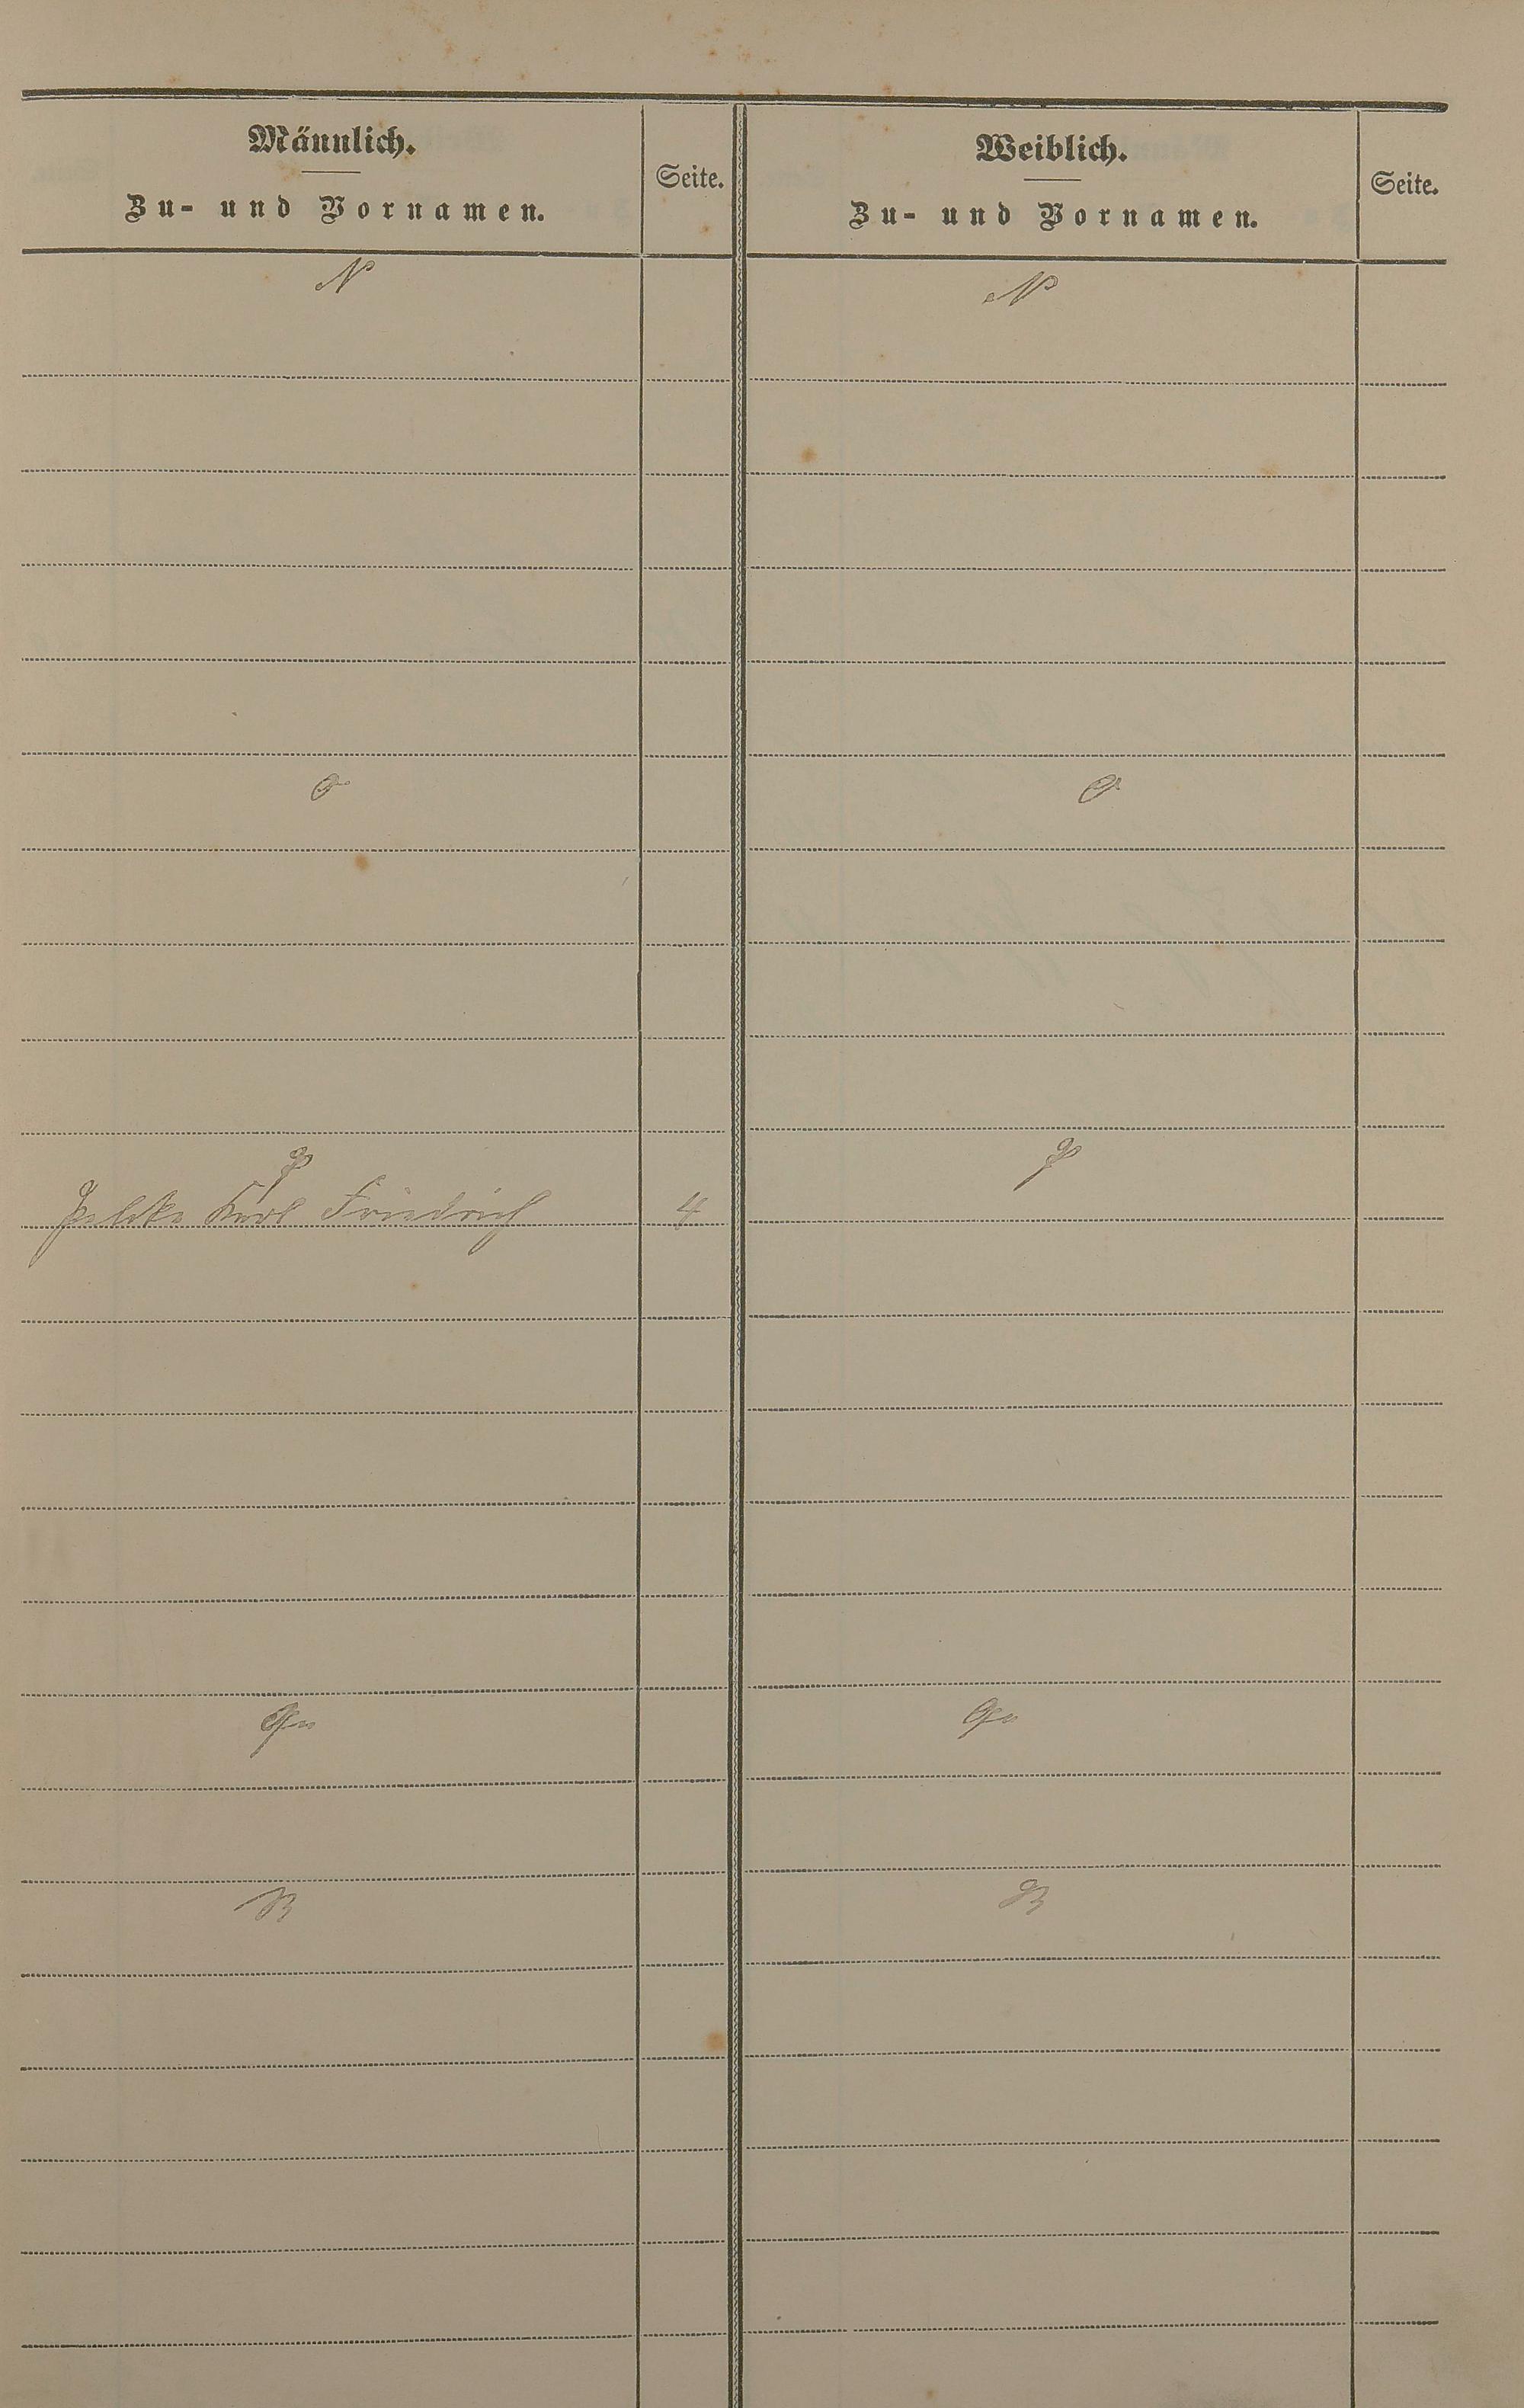 Männlich.
Zu- und Vornamen.
Seite.
Weiblich.
Zu- und Vornamen.
Seite.
N
N
O
O
P
P
Karl Friedrich 4
Qu
Qu
R
R